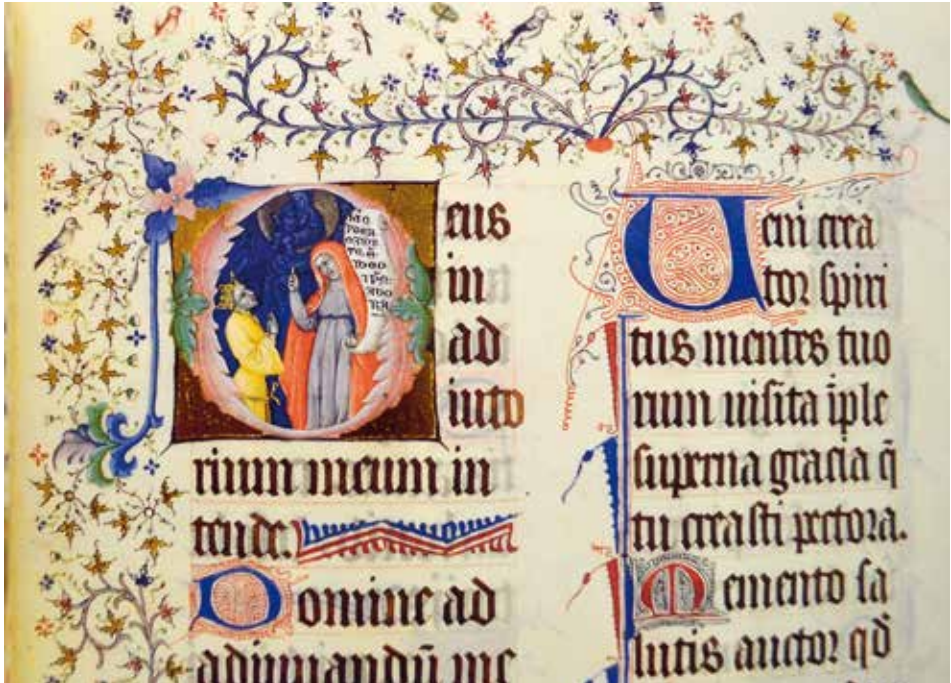 Deus
in
ad
iuto
rium meum in
tende.
Domine ad
adiuuandū me
Ueni crea
tor spiri
tus mentes tuo
rum uisita īple
superna gracia q̄
tu creasti pectora.
Memento sa
lutis auctor qd̄